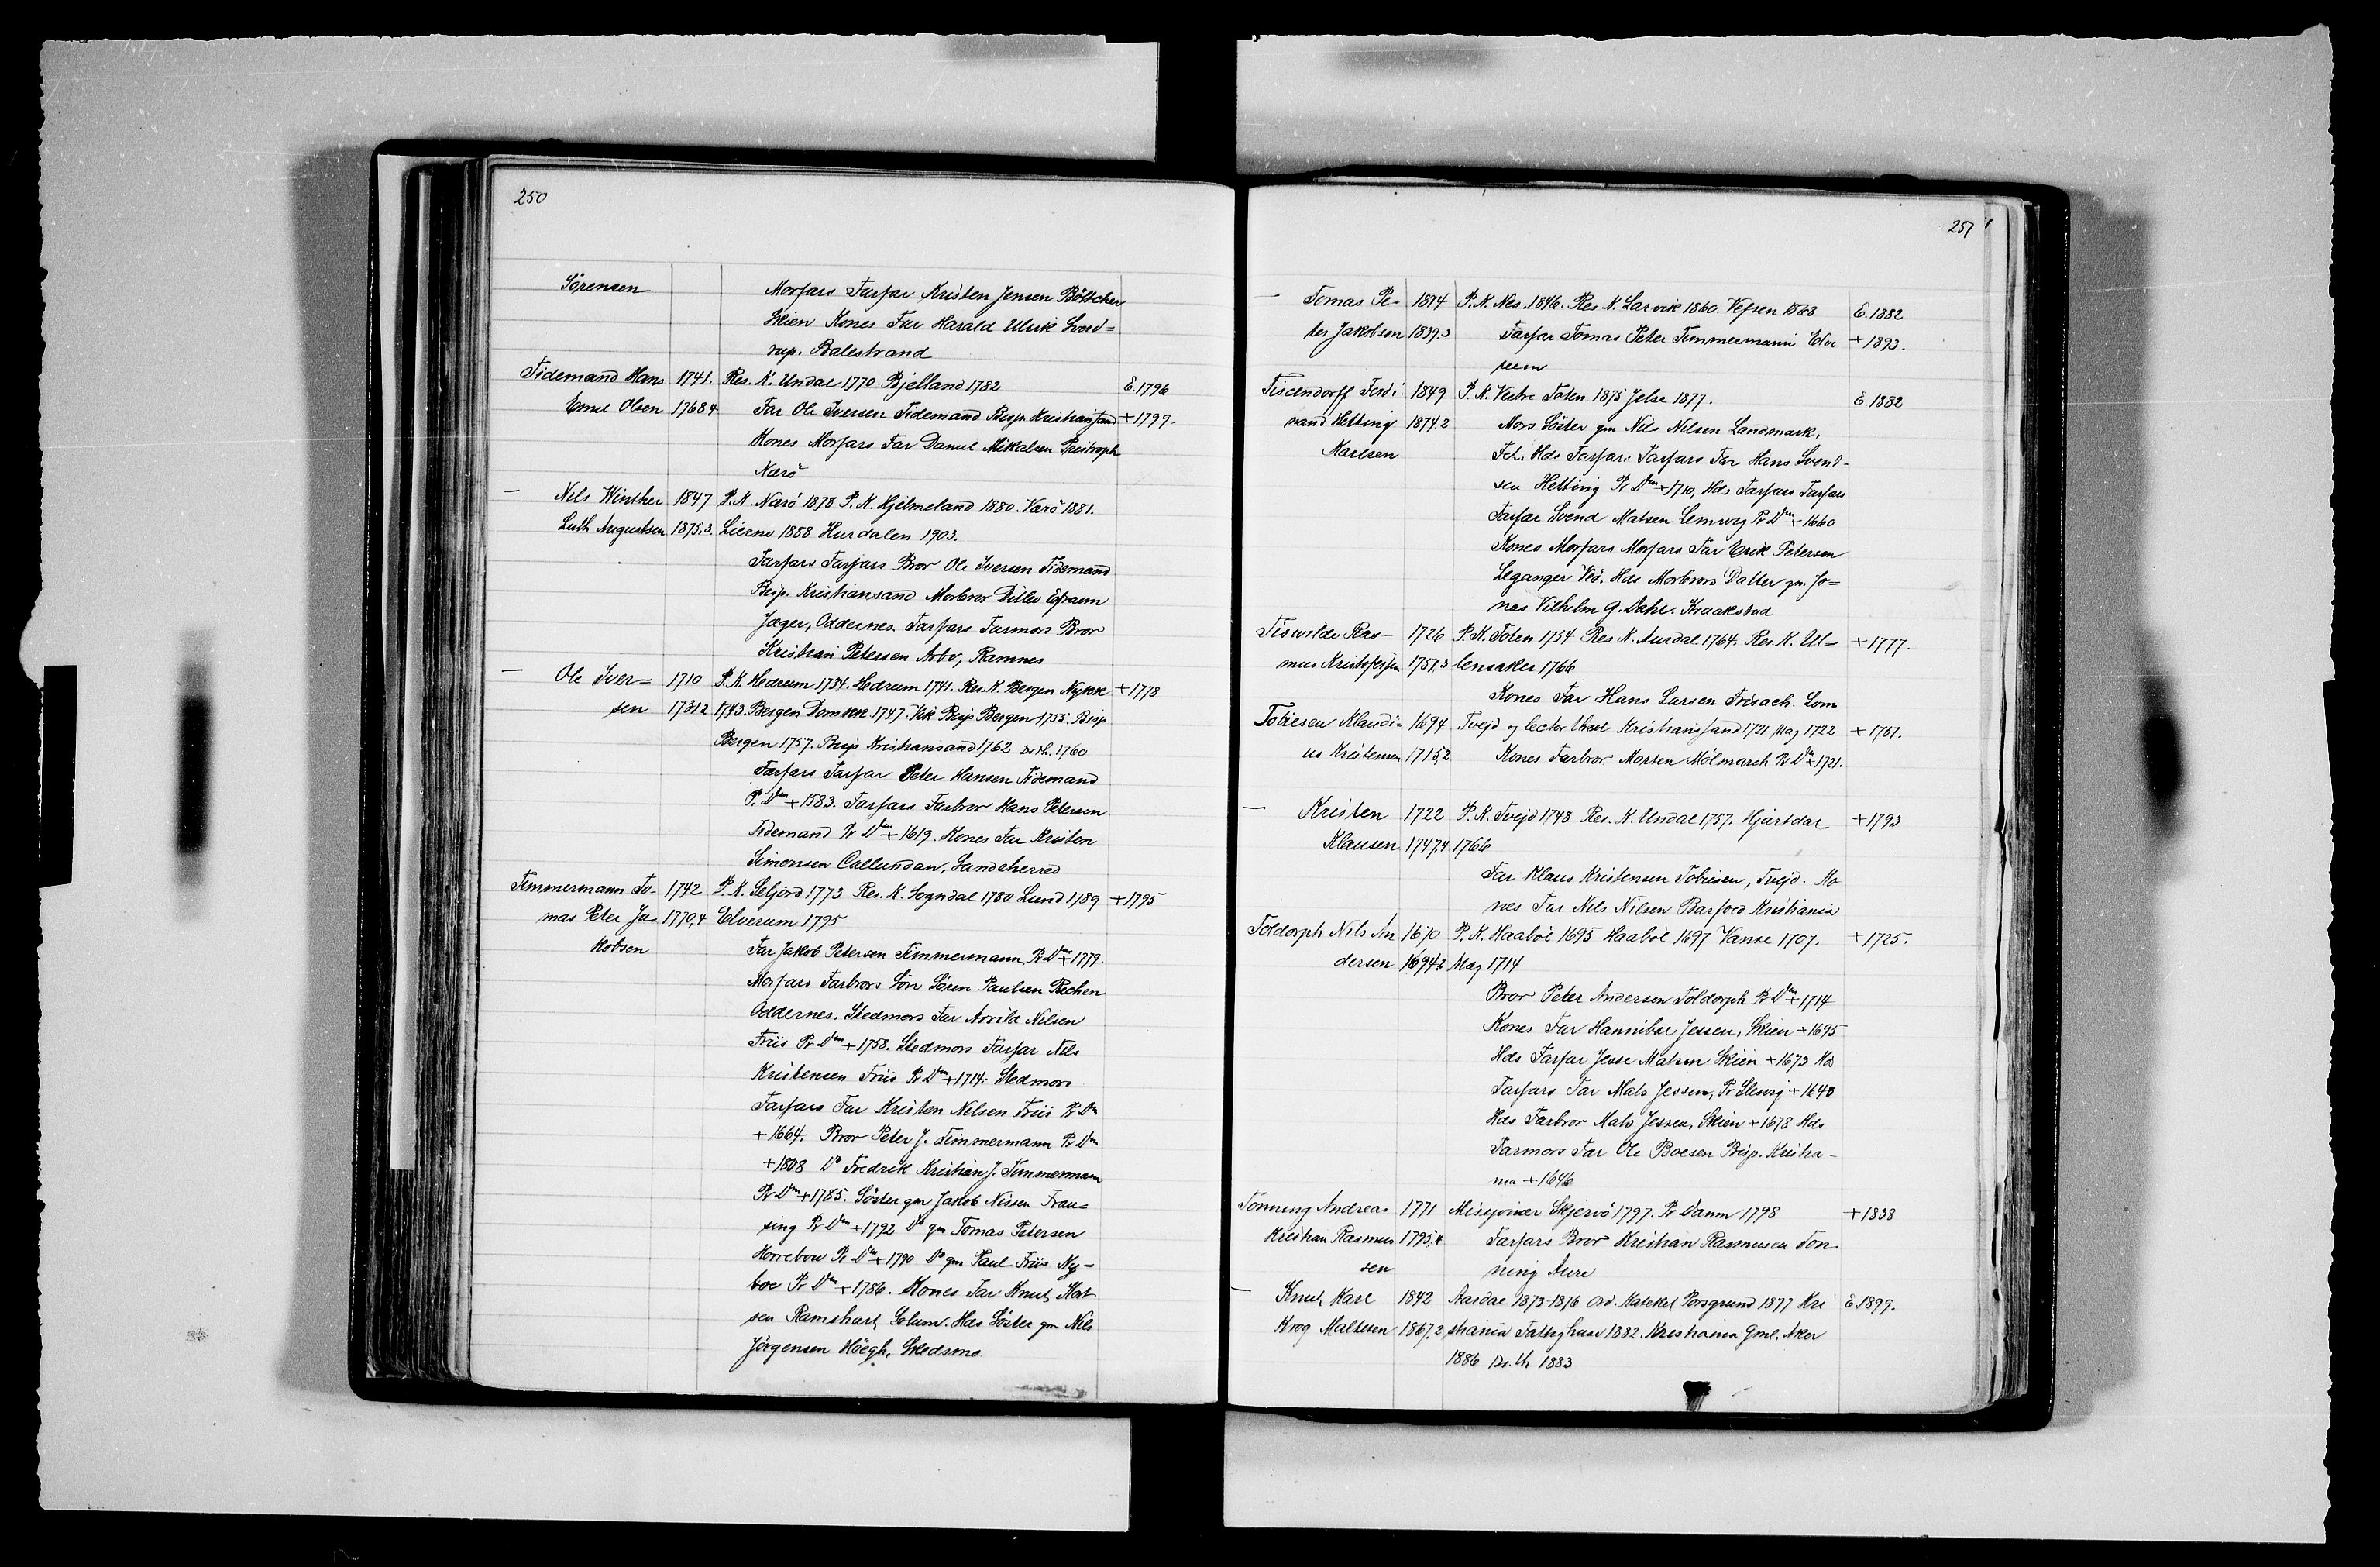 250
Sörensen Morfars Farfar Kristen Jensen Böttcher
Skien Kones Far Harald Ulrik Sverd=
rup. Balestrand
Tidemand Hans 1741. Res. K. Undal 1770 Bjelland 1782 E. 1796
Emil Olsen 1768 4 Far Ole Iversen Tidemand Bisp. Kristiansand +1799.
Kones Morfars Far Daniel Mikalsen
Nærö
— Nils Winther 1847 P. K. Nærö 1878 P. K. Hjelmeland 1880. Værö 1881.
Luth Augustsen 1875,3. Lierne 1888 Hurdalen 1903.
Farfars Farfars Bror Ole Iversen Tidemand
Bisp. Kristiansand Morbror Ditlev Efraem
Jæger, Oddernes. Farfars Farmors Bror
Kristian Petersen Arbo, Ramnes
— Ole Iver= 1710 P. K. Hedrum 1734. Hedrum 1741. Res. K. Bergen Nykk +1778
sen 1731 2 1743. Bergen Domkk 1747. Vik. Bisp Bergen 1755. Bisp
Bergen 1757. Bisp Kristiansand 1762 Dr th. 1760
Farfars Farfar Peter Hansen Tidemand
P. Dm + 1583. Farfars Farbror Hans Petersen
Tidemand Pr Dm + 1619. Kones Far Kristen
Simonsen Callundan, Sandeherred
Timmermann To- 1742 P. K. Seljord 1773 Res. K. Sogndal 1780 Lund 1789 +1795
mas Peter Ja= 1770,4 Elverum 1795
kobsen Far Jakob Petersen Timmermann Pr Dm + 1779.
Morfars Farbrors Sön Sören Paulsen Pechen
Oddernes. Stedmors Far Arvild Nilsen
Friis Pr Dm + 1758. Stedmors Farfar Nils
Kristensen Friis Pr Dm + 1714. Stedmors
Farfars Far Kristen Nilsen Friis Pr Dm
+ 1664. Bror Peter J. Timmermann Pr Dm
+ 1808 Do Fredrik Kristian J. Timmermann
Pr Dm + 1785. Söster gm Jakob Nissen Frau=
sing Pr Dm + 1792 Do gm Tomas Petersen
Horrebow Pr Dm + 1790 Do gm Paul Friis Ny=
boe Pr Dm + 1786. Kones Far Knut Mat
sen Ramshart, Solum. Hds Söster gm Nils
Jörgensen Höegh, Skedsmo
251
— Tomas Pe- 1814 P. K. Nes. 1846. Res. K. Larvik 1860. Vefsen 1868 E. 1882
ter Jakobsen 1839.3 Farfar Tomas Peter Timmermann Elve + 1893.
rum
Tiscendorff Ferdi 1849 P. K. Vestre Toten 1875 Jelse 1877. E. 1882
nand Hetting 1874.2 Mors Söster gm Nils Nilsen Landmark,
Karlsen Fet. Hds Farfars Farfars Far Hans Svend-
sen Hetting Pr Dm + 1710, Hds Farfars Farfars
Farfar Svend Matsen Lemvig Pr Dm + 1660
Kones Morfars Morfars Far Erik Petersen
Leganger Veö. Hds Morbrors Datter gm. Jo=
nas Vilhelm G. Dahl. Kraakstad
Tiswilde Ras- 1726 P. K. Toten 1754 Res. K. Aurdal 1764. Res. K. Ul- + 1777.
mus Kristofersen 1751.3 lensaker 1766
Kones Far Hans Larsen Frisach. Lom
Tobiesen Klaudi- 1694 Tvejd og lector theol Kristiansand 1721 Mag 1722 + 1751.
us Kristensen 1715,2. Kones Farbror Morten Mölmarch Pr Dm + 1721.
— Kristen 1722 P. K. Tvejd 1748 Res. K. Undal 1757. Hjartdal + 1793
Klausen 1747.4 1766
Far Klaus Kristensen Tobiesen, Tvejd. Ko
nes Far Nils Nilsen Barfoed. Kristiania
Toldorph Nils An 1670 P. K. Haaböl 1695 Haaböl 1697 Vanse 1707. + 1725.
dersen 1694.2 Mag 1714
Bror Peter Andersen Toldorph Pr Dm + 1714
Kones Far Hannibal Jessen, Skien + 1695
Hds Farfar Jesse Matsen Skien + 1673 Hds
Farfars Far Mats Jessen, Pr Slesvig + 1648
Hds Farbror Mats Jessen, Skien + 1678 Hds
Farmors Far Ole Boesen Bisp. Kristia-
nia + 1646
Tonning Andreas 1771 Missjonær Skjervö 1797. Pr Danm 1798 + 1838
Kristian Rasmus 1795.4 Farfars Bror Kristian Rasmusen Ton-
sen ning Aure
— Knut Karl 1842 Aardal 1873-1876 Ord. Kateket Porsgrund 1877 Kri E. 1899.
Krog Maltesen 1867.2 stiania Fattighuse 1882. Kristiania Gml. Aker
1886 Dr. th 1883